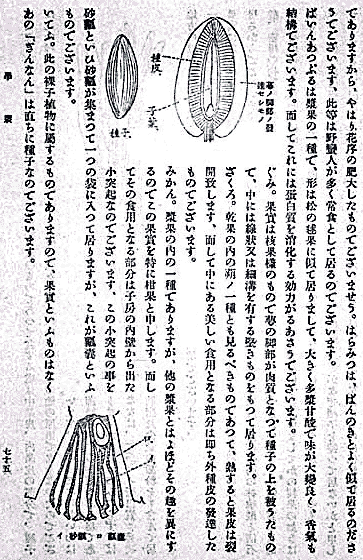 でありますから、今はり花序の肥大したものでございませう。はらみつは、ぱんのきとよく似て居るのださ
うでございます。此等は野蠻人が多く常食として居るのでございます。
ぱいんあつぷるは漿果の一種で、形は松の毬果に似て居りまして、大きく多漿甘酸で味が大變良く、香氣も
結構でございます。而してこれには蛋白質を消化する効力があるさうでございます。
ぐみ。果實は核果樣のもので萼の脚部が肉質となつて種子の上を被うたもの
で、中には線狀又は細溝を有する堅きものをもつて居ります。
ざくろ。乾果の内の蒴ノ一種とも見るべきものであつて、熟すると果皮は裂
開致します、而して中にある美しい食用となる部分は即ち外種皮の發達した
ものでございます。
みかん。漿果の内の一種でありますが、他の漿果とはよほどその趣を異にす
るのでこの果實を特に柑果と申します。而し
てその食用となる部分は子房の内壁から出た
小突起なのでございます、この小突起の事を
砂瓤といひ砂瓤が集まつて一つの袋に入つて居りますが、これが瓤囊といふ
ものでございます。
いてふ。此の裸子植物に屬するものでありますので、果實といふものはなく
あの「ぎんなん」は直ちに種子なのでございます。
萼ノ脚部ノ發
達セシモノ
種皮
子葉
種子
イ
ロ
イ 砂瓤 ロ 瓤囊
七十五